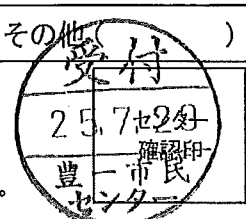 その他(　　　)
受付
25.7.29
センター
確認印
豊一市民
センター
。